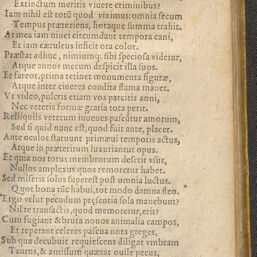 Extinctum meritis viuere criminibus?
Iam nihil est totũ quod viximus: omnia secum
Tempus præteriens, horaque summa trahit.
At mea iam niuei circumdant tempora cani,
Et iam cæruleus inficit ora color.
Præstat adhuc, nimiumq; sibi speciosa videtur,
Atque annos mecum despicit illa suos.
Et fateor, prima retinet monumenta figuræ,
Atque inter cineres condita flama manet.
Vt video, pulcris etiam vos parcitis anni,
Nec veteris formæ gratia tota perit.
Relliquiis veterum iuuenes pascũtur amorum,
Sed si quid nunc est, quod fuit ante, placet.
Ante oculos statuunt primæui temporis actus,
Atque in præteritum luxuriantur opus.
Et quia nos totus membrorum deserit vsus,
Nullos amplexus quos remoretur habet.
Sed miseris solus superest post omnia luctus.
Quot bona tũc habui, tot modo damna fleo.
Ergo velut pecudum præsentia sola manebunt?
Nil te transactis, quod memoretur, erit?
Cum fugiant & bruta nouos animalia campos,
Et reperant celeres pascua nota greges,
Sub qua decubuit requiescens diligat vmbram
Taurus, & amissum quærat ouile pecus,